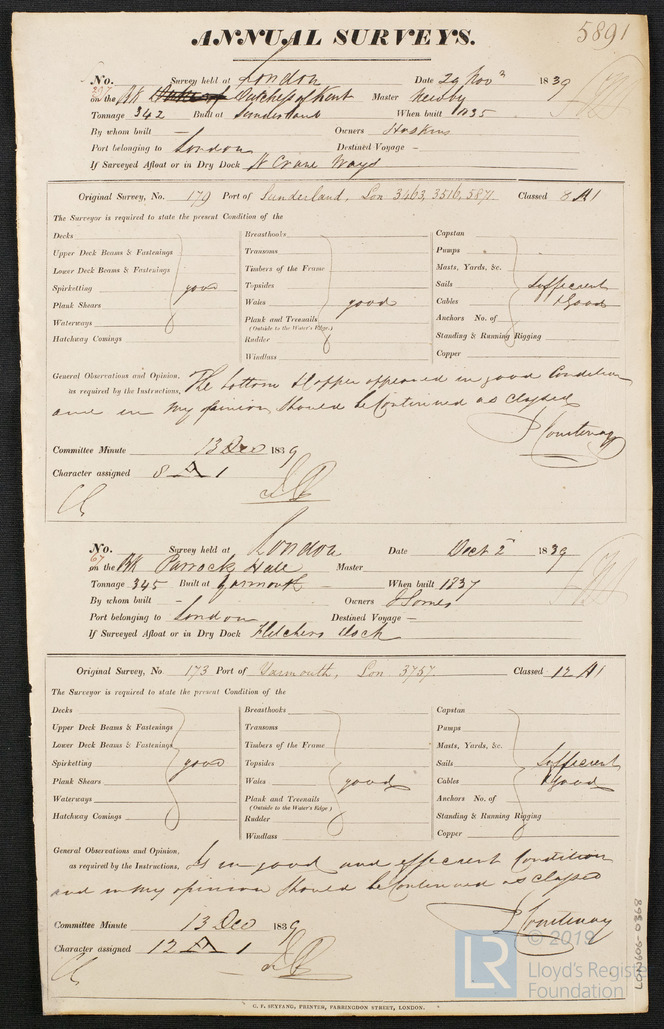 5891
ANNUAL SURVEYS.
No. Survey held at London Date 29 Nov 1839
on the Bk Dutchess of Kent Master Newby
Tonnage 342 Built at Sunderland When built 1835
By whom built — Owners Hoskins
Port belonging to London Destined Voyage —
If Surveyed Afloat or in Dry Dock
Original Survey, No. 179 Port of Sunderland, Lon 3463, 3516, 5871. Classed 8 A1
The Surveyor is required to state the present Condition of the
Decks Breasthooks Capstan
Upper Deck Beams & Fastenings Transoms Pumps
Lower Deck Beams & Fastenings Timbers of the Frame Masts, Yards, &c.
Spirketting good Topsides Sails Sufficient
Plank Shears Wales good Cables & Good
Waterways Plank and Treenails Anchors No. of
(Outside to the Water's Edge.)
Hatchway Comings Rudder Standing & Running Rigging
Windlass Copper
General Observations and Opinion, The bottom & Copper appeared in good Condition
as required by the Instructions,
and in my opinion should be Continued as classed
J Courtenay
Committee Minute 13 Dec 1839
Character assigned 8 A 1
No. Survey held at London Date Dect 2 1839
67
on the Bk Parrock Hall Master
Tonnage 345 Built at Yarmouth When built 1837
By whom built — Owners J Somes
Port belonging to London Destined Voyage —
If Surveyed Afloat or in Dry Dock Fletchers Dock
Original Survey, No 173 Port of Yarmouth, Lon 3757. Classed 12 A1
The Surveyor is required to state the present Condition of the
Decks Breasthooks Capstan
Upper Deck Beams & Fastenings Transoms Pumps
Lower Deck Beams & Fastenings Timbers of the Frame Masts, Yards, &c.
Spirketting good Topsides Sails Sufficient
Plank Shears Wales good Cables & Good
Waterways Plank and Treenails Anchors No. of
(Outside to the Water's Edge)
Hatchway Comings Rudder Standing & Running Rigging
Windlass Copper
General Observations and Opinion, Is in good and efficient Condition
as required by the Instructions,
and in my opinion should be Continued as classed
J Courtenay
Committee Minute 13 Dec 1839
Character assigned 12 A 1
C. F. SEYFANG, PRINTER, FARRINGDON STREET, LONDON.
LON606-0368
LR © 2019
Lloyd's Register
Foundation